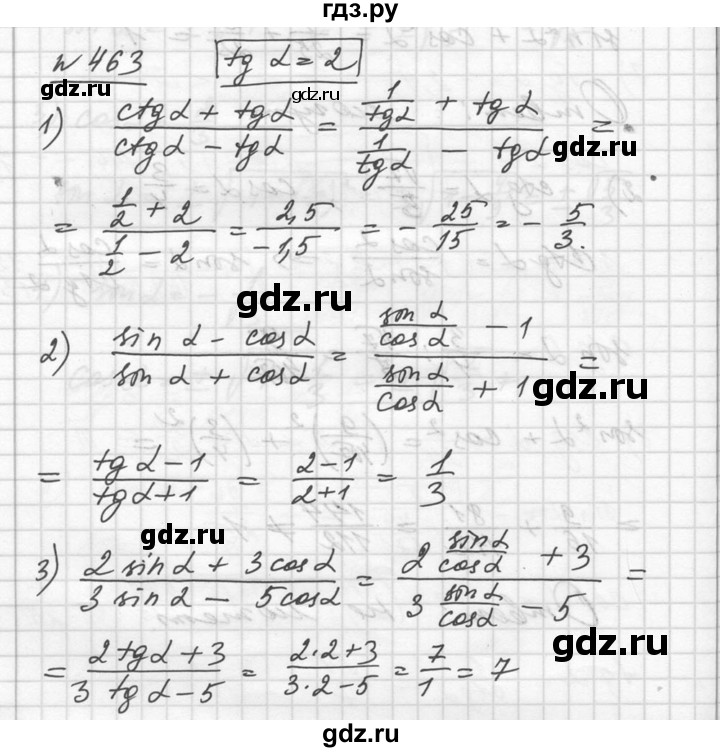 гдз.ру
№ 463 tg α = 2
gdz.ru gdz.ru
1) (ctgα + tgα)/(ctgα - tgα) = (1/tgα + tgα)/(1/tgα - tgα) =
gdz.ru gdz.ru
= (1/2 + 2)/(1/2 - 2) = 2,5/-1,5 = - 25/15 = - 5/3.
gdz.ru
2) (sin α - cosα)/(sin α + cosα) = (sin α/cosα - 1)/(sinα/cosα + 1) =
gdz.ru
= (tgα - 1)/(tgα + 1) = (2-1)/(2+1) = 1/3
gdz.ru
3) (2 sinα + 3 cosα)/(3 sinα - 5cosα) = (2 sinα/cosα + 3)/(3 sinα/cosα - 5) =
gdz.ru
= (2tgα + 3)/(3 tgα - 5) = (2·2+3)/(3·2-5) = 7/1 = 7
gdz.ru gdz.ru
gdz.ru